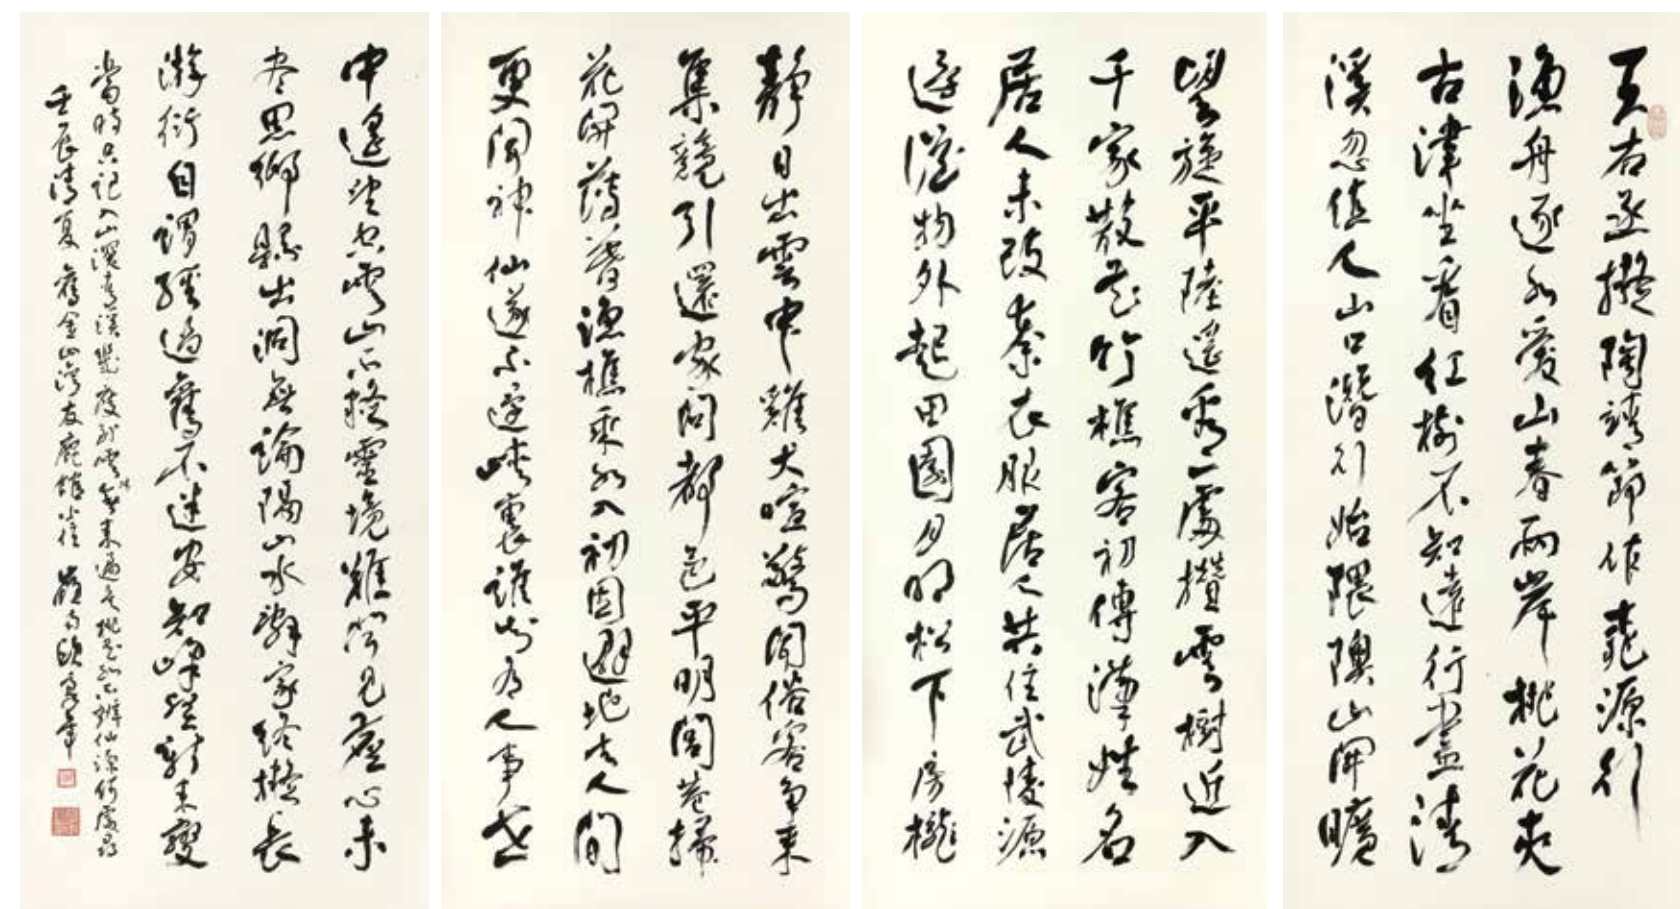 王右丞擬陶靖節作桃源行
漁舟逐水愛山春兩岸桃花夾
古津坐看紅樹不知遠行盡清
溪忽值人山口潛行始隈隩山開曠
望旋平陸遙看一處攢雲樹近入
千家散花竹樵客初傳漢姓名
居人未改秦衣服居人共住武陵源
還從物外起田園月明松下房櫳
靜日出雲中雞犬喧驚聞俗客爭來
集競引還家問都邑平明閭巷掃
花開薄暮漁樵乘水入初因避地去人間
更聞神仙遂不還峽裏誰知有人事世
中遙望空雲山不疑靈境難聞見塵心未
盡思鄉縣出洞無論隔山水辭家終擬長
游衍自謂經過舊不迷安知峰壑新來變
當時只記入山深青溪幾度到雲林春來遍是桃花水不辨仙源何處尋
壬辰清夏舊金山灣